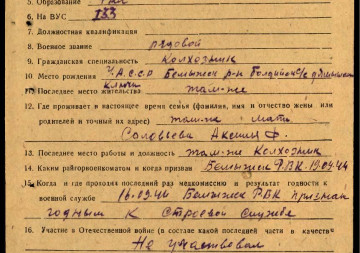 5. Образование
6. На ВУС 133
7. Должностная квалификация
8. Военное звание рядовой
9. Гражданская специальность Колхозник
10. Место рождения УАССР Бемыжск р-н
11. Последнее место жительства там-же
12. Где проживает в настоящее время семья (фамилия, имя и отчество жены или
родителей и точный их адрес) там-же мать
Соловьева
13. Последнее место работы и должность там-же Колхозник
14. Каким райгорвоенкоматом и когда призван Бемыжск РВК
15. Когда и где проходил последний раз медкомиссию и результат годности к
военной службе 16.09.44 Бемыжск РВК признан
годным к строевой службе
16. Участие в Отечественной войне (в составе какой последней части в качестве
Не участвовал